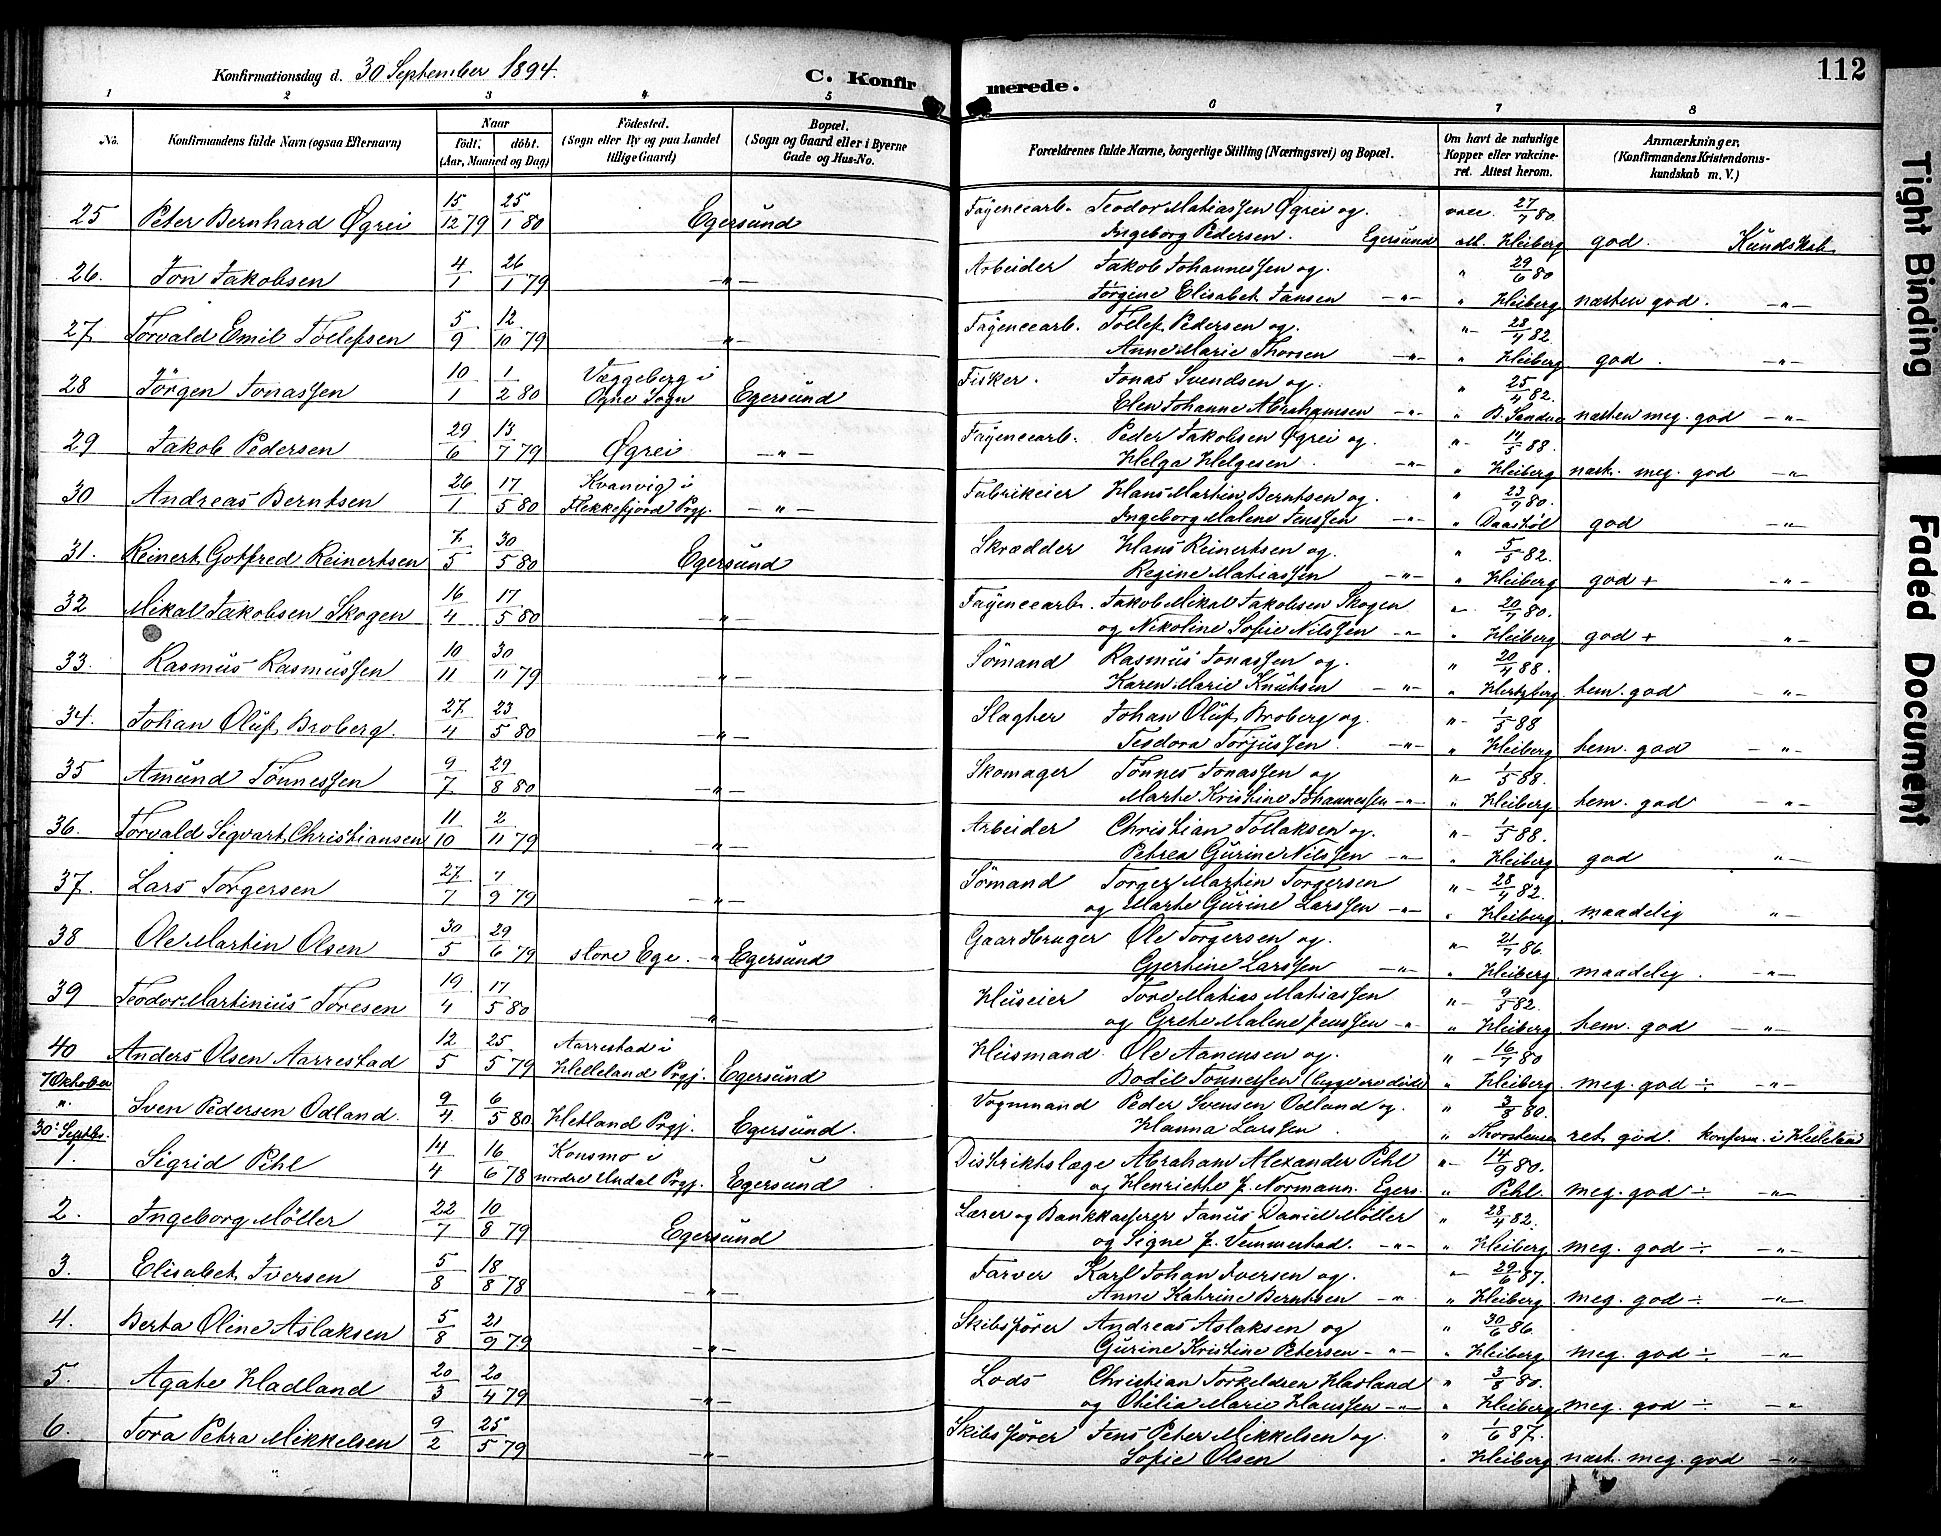 Konfirmationsdag d. 30 September 1894. C. Konfirmerede. 112
1 2 3 4 5 6 7 8
No. Konfirmandens fulde Navn (ogsaa Efternavn) Naar født. døbt. (Aar, Maaned og Dag) Fødested. (Sogn eller By og paa Landet tillige Gaard) Bopæl. (Sogn og Gaard eller i Byerne Gade og Hus-No. Forældrenes fulde Navne, borgerlige Stilling (Næringsvei) og Bopæl. Om havt de naturlige Kopper eller vakcineret. Attest herom. Anmærkninger. (Konfirmandens Kristendomskundskab m. V.)
25 Peter Bernhard Øgrei 15/12 79 25/1 80 Egersund Fayencearb. Teodor Matiassen Øgrei og vacc. 27/7 80
Ingeborg Pedersen. Egersund att. Heiberg god. Kundskab
26. Jon Jakobsen 4/1 26/1 79 -"- Arbeider Jakob Johannessen og " 29/6 80
Jørgine Elisabet Jansen -"- " Heiberg næsten god. -"-
27 Torvald Emil Tollefsen 5/9 12/10 79 -"- Fayencearb. Tollef Pedersen og "- 28/4 82
Anne Marie Thorsen -"- " Heiberg god. -"-
28 Jørgen Jonassen 10/1 1/2 80 Væggeberg i Ogne Sogn Egersund Fisker. Jonas Svendsen og " 25/4 82
Elen Johanne Abrahamsen -"- " B. næsten meg. god -"-
29 Jakob Pedersen 29/6 13/7 79 Øgrei -"- Fayencearb. Peder Jakobsen Øgrei og "- 14/5 88
Helga Helgesen. -"- " Heiberg næst. meg. god -"-
30 Andreas Berntsen 26/1 17/5 80 Kvanvig i Flekkefjord Prgj. -"- Fabrikeier Hans Martin Berntsen og " 23/9 80
Ingeborg Malene Jenssen -"- " god -"-
31. Reinert Gotfred Reinertsen 7/5 30/5 80 Egersund Skrædder Hans Reinertsen og " 5/5 82
Regine Matiassen -"- " Heiberg god + -"-
32 Mikal Jakobsen Skogen 16/4 17/5 80 -"- Fayencearb. Jakob Mikal Jakobsen Skogen "- 20/7 80
og Nikoline Sofie Nilssen -"- " Heiberg god + "-
33. Rasmus Rasmussen 10/11 30/11 79 -"- Sømand Rasmus Jonassen og " 20/4 88
Karen Marie Knutsen -"- " Hertzberg tem. god -"-
34. Johan Oluf Broberg. 27/4 23/5 80 -"- Slagter Johan Oluf Broberg og "- 1/5 88
Teodora Torjussen. -"- " Heiberg tem. god -"-
35 Amund Tønnessen 9/7 29/8 80 -"- Skomager Tønnes Jonassen og "- 1/5 88
Marte Kristine Johannessen -"- " Heiberg tem. god -"-
36. Torvald Sigvart Christiansen 11/10 2/11 79 -"- Arbeider Christian Tollaksen og "- 1/5 88
Petrea Gurine Nilssen -"- " Heiberg god "-
37. Lars Torgersen 27/7 7/9 79 -"- Sømand Torger Martin Torgersen "- 28/4 82
og Marte Gurine Larssen -"- " Heiberg maadelig "-
38 Ole Martin Olsen 30/5 29/6 79 store Ege. -"- Egersund Gaardbruger Ole Torgersen og "- 21/7 86
Gjertine Larssen -"- " Heiberg maadelig. -"-
39 Teodor Martinius Toresen 19/4 17/5 80 -"- Huseier Tore Matias Matiassen "- 9/5 82
og Grete Malene Jenssen -"- " Heiberg tem. god -"-
40 Anders Olsen Aarrestad 12/5 25/5 79 Aarrestad i Helleland Prgj. Egersund Heismand. Ole Aanensen og "- 16/7 80
Bodil Tønnessen (begge ere døde) " Heiberg. meg. god ÷ -"-
7 Oktober " Sven Pedersen Odland. 9/4 6/5 80 Hetland Prgj. Egersund. Vognmand Peder Svensen Odland og " 3/8 80
Hanna Larssen. " Thorstensen ret god. konfirm. i Helleland
30. Septbr.
1. Sigrid Pihl 14/4 16/6 78 Konsmo i nordre Undal Prgj. Egersund Distriktslæge Abraham Alexander Pihl "- 14/9 80
og Henriette J. Normann. Egers. " Pehl. meg. god ÷ -"-
2. Ingeborg Møller 22/7 10/8 79 Egersund Lærer og Bankkasserer Janus Daniel Møller " 28/4 82
og Signe J. Vemmestad. -"- " Heiberg meg. god ÷ -"-
3. Elisabet Iversen 5/8 18/8 78 -"- Farver Karl Johan Iversen og " 29/6 87
Anne Katrine Berntsen -"- " Heiberg meg. god ÷ -"-
4. Berta Oline Aslaksen 5/8 21/9 79 -"- Skibsfører Andreas Aslaksen og " 30/6 86
Gurine Kristine Petersen -"- " Heiberg meg. god ÷ -"-
5. Agate Hadland 20/3 20/4 79 -"- Lods Christian Torkeldsen Hadland " 3/8 80
og Otilia Marie Hanssen -"- " Heiberg meg. god ÷ -"-
6. Tora Petra Mikkelsen 9/2 25/5 79 -"- Skibsfører Jens Peter Mikkelsen og " 1/6 87
Sofie Olsen " Heiberg næst. meg. god -"-
Tight Binding
Faded Document